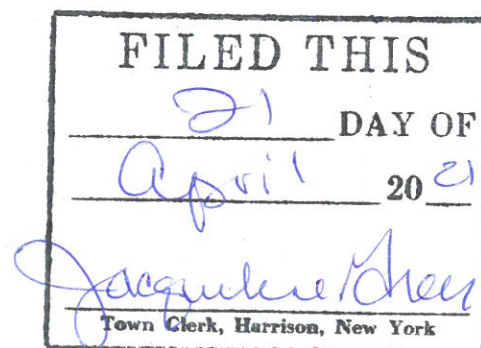 FILED THIS
21 DAY OF
April 20 21
Jacqueline Greer
Town Clerk, Harrison, New York